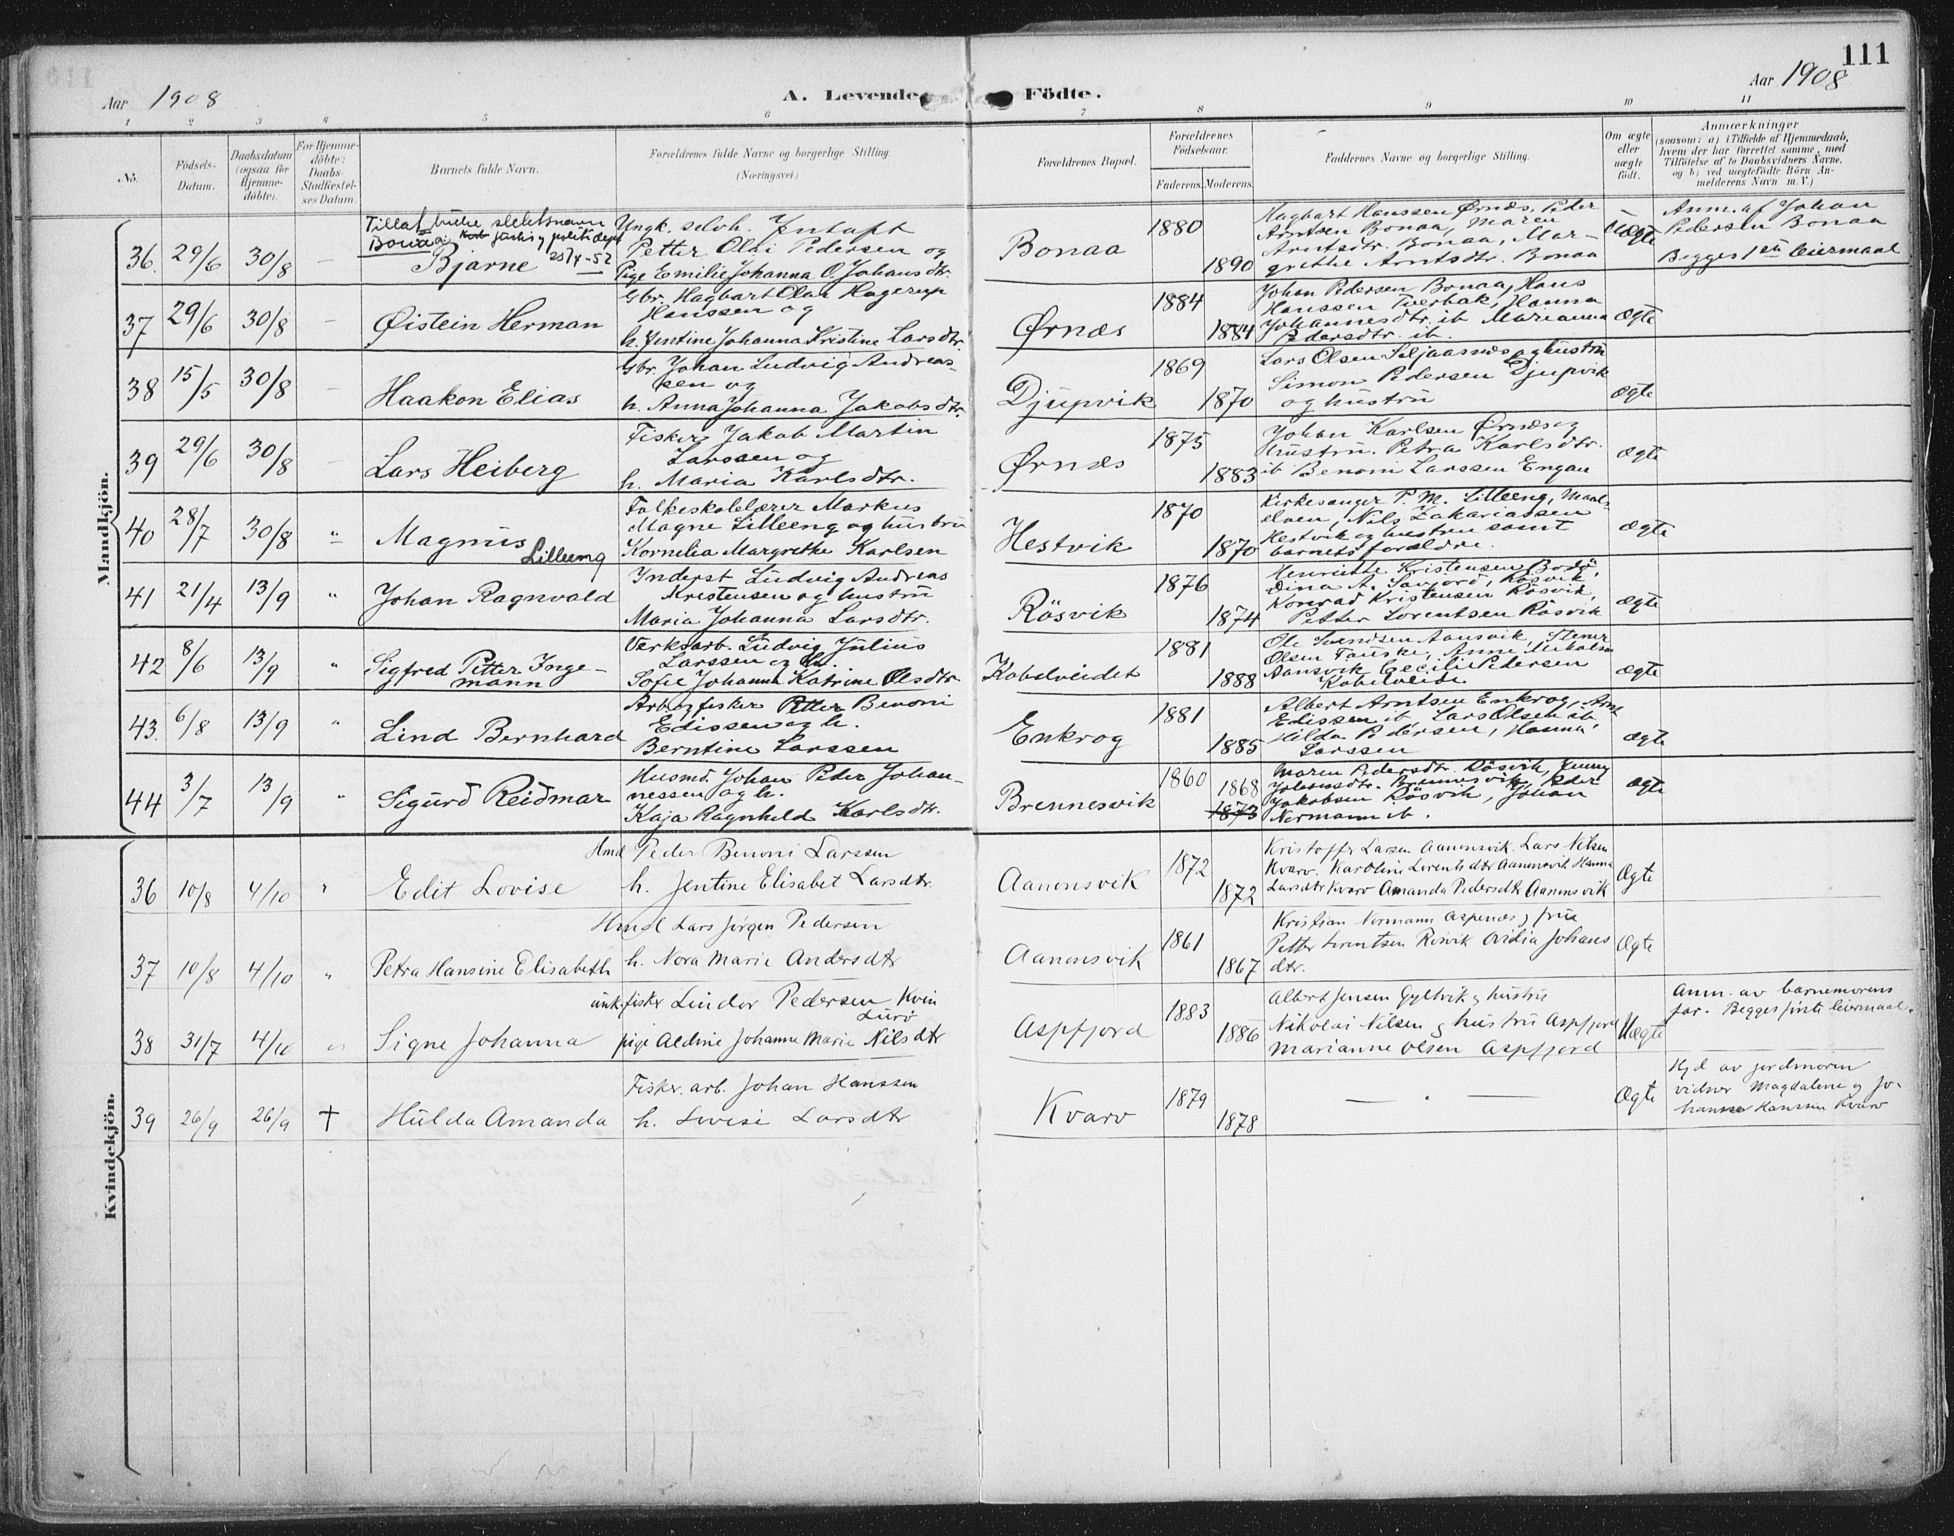 111
Aar 1908
A. Levende Födte.
Aar 1908
1 2 3 4 5 6 7 8 9 10 11
No.
Födsels-Datum.
Daabsdatum (ogsaa for Hjemmedöbte).
For Hjemmedöbte: Daabs-Stadfæstelses Datum.
Barnets fulde Navn.
Forældrenes fulde Navne og borgerlige Stilling. (Næringsvei.)
Forældrenes Bopæl.
Forældrenes Födselsaar.
Faderens. Moderens.
Faddernes Navne og borgerlige Stilling.
Om ægte eller uægte födt.
Anmærkninger
(saasom: a) i Tilfælde af Hjemmedaab,
hvem der har forrettet samme, med
Tilföielse af to Daabsvidners Navne.
og b) ved uægtefödte Börn An-
melderens Navn m. V.)
Mandkjön.
36. 29/6 30/8 –
Tillat bruke slektsnavn
Bonaa justis og politidept
Bjarne 25/4-52
Ungk. selvh. Intapt
Petter Olai Pedersen og
Pige Emilie Johanna O. Johansdtr.
Bonaa 1880 1890
Hagbart Hanssen Ørnæs, Peder
Arntsen Bonaa, Maren
Arntsdtr. Bonaa, Mar-
grethe Arntsdtr. Bonaa
Uægte
Anm. af Johan
Pedersen Bonaa
Begges 1ste leiermaal
37 29/6 30/8 –
Øistein Herman
Gbr. Hagbart Olai Hagerup
Hanssen og
h. Jentine Johanna Kristine Larsdtr.
Ørnæs 1884 1884
Johan Pedersen Bonaa, Hans
Hanssen Tverbak, Hanna
Johannesdtr. ib Marianna
Pedersdtr. ib.
Ægte
38 15/5 30/8 –
Haakon Elias
Gbr. Johan Ludvig Andreas-
sen og
h. Anna Johanna Jakobsdtr.
Djupvik 1869 1870
Lars Olsen Seljaasnæs og hustru
Simon Pedersen Djupvik
og hustru
Ægte
39 29/6 30/8 –
Lars Heiberg
Fisker Jakob Martin
Larssen og
h. Maria Karlsdtr.
Ørnæs 1875 1883
Johan Karlsen Ørnæs og
hustru. Petra Karlsdtr.
ib Benoni Larssen Engan
Ægte
40 28/7 30/8 "
Magnus
Lilleeng
Folkeskolelærer Markus
Magne Lilleeng og hustru
Kornelia Margrethe Karlsen
Hestvik 1870 1870
Kirkesanger P. M. Lilleeng, Maals-
elven, Nils Zakariassen
Hestvik og hustru samt
barnets forældre.
Ægte
41 21/4 13/9 "
Johan Ragnvald
Inderst Ludvig Andreas
Kristensen og hustru
Maria Johanna Larsdtr.
Rösvik 1876 1874
Henriette Kristensen Bodö,
Dina A. Savjord, Rösvik,
Konrad Kristensen Rösvik,
Petter Lorentsen Rösvik
Ægte
42 8/6 13/9 "
Sigfred Petter Inge-
mann
Verksarb. Ludvig Julius
Larssen og h.
Sofie Johanna Katrine Olsdtr.
Kobelveidet 1881 1888
Ole Svendsen Aansvik, Stener
Olsen Fauske, Anne
Aansvik Cecilie Pedersen
Kobelveide
Ægte
43. 6/8 13/9 "
Lind Bernhard
Arb og fisker Petter Benoni
Edissen og h.
Berntine Larssen
Enkrog 1881 1885
Albert Arntsen Enkrog, Arnt
Edissen ib, Lars Olsen ib,
Hilda Pedersen, Hanna
Larssen
Ægte
44 3/7 13/9 "
Sigurd Reidmar
Husmd. Johan Peder Johan-
nessen og h.
Kaja Ragnhild Karlsdtr.
Brennesvik 1860 1868 1873
Maren Pedersdtr. Rösvik, Jenny
Johansdtr. Brennesvik, Peder
Jakobsen Rösvik, Johan
Normann ib.
Ægte
Kvindekjön.
36 10/8 4/10 "
Edit Lovise
Hmd Peder Benoni Larssen
h. Jentine Elisabet Larsdtr.
Aanonsvik 1872 1872
Kristoffer Larsen Aanonsvik. Lars Nilsen
Kvarv. Karoline Lorentsdtr Aanonsvik Hanna
Larsdtr Kvarv Amanda Pedersdtr Aanonsvik
Ægte
37 10/8 4/10 "
Petra Hansine Elisabeth
Hmd Lars Jörgen Pedersen
h. Nora Marie Andersdtr
Aanonsvik 1861 1867
Kristian Normann Aspenæs og frue
Petter Lorentsen Rösvik Ovidia Johans
dtr.
Ægte
38 31/7 4/10 "
Signe Johanna
unk. fisker Lindor Pedersen Kvin
Lurö
pige Aldine Johanne Marie Nilsdtr
Aspfjord 1883 1886
Albert Jensen Gyltvik og hustru
Nikolai Nilsen og hustru Aspfjord
Marianne Olsen Aspfjord
Uægte
Anm. av barnemorens
far. Begges første leiermaal.
39 26/9 26/9 †
Hulda Amanda
Fisker. arb. Johan Hanssen
h. Lovise Larsdtr
Kvarv 1879 1878
— " —
Ægte
Hjd av jordmoren
vidner Magdalene og Jo-
hanna Hanssen Kvarv